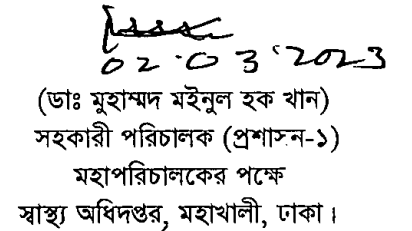 02.03.2023
(ডাঃ মুহাম্মদ মইনুল হক খান)
সহকারী পরিচালক (প্রশাসন-১)
মহাপরিচালকের পক্ষে
স্বাস্থ্য অধিদপ্তর, মহাখালী, ঢাকা।